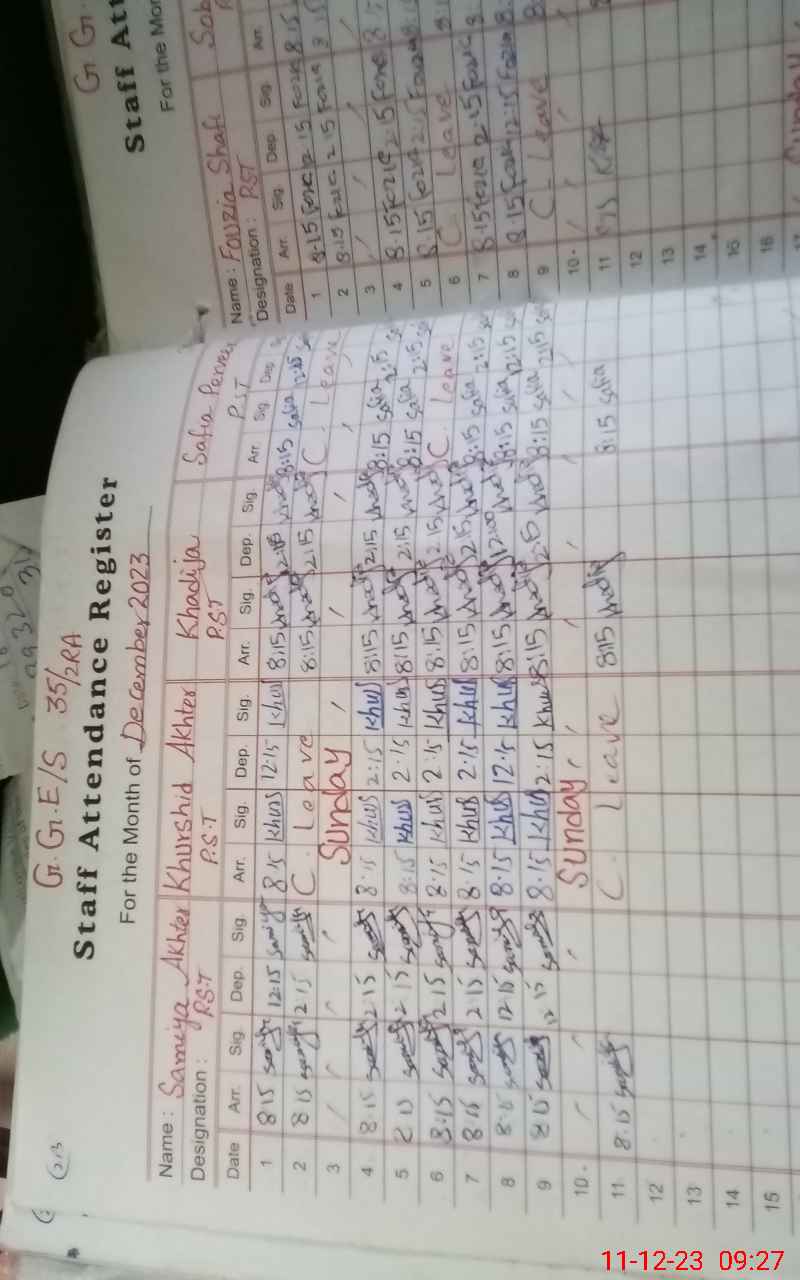 G.G.E/S 35/2RA
Staff Attendance Register
For the Month of December 2023
Name : Samiya Akhter Khurshid Akhter Khadija Safia Perveen
Designation : P.S.T P.S.T P.S.T P.S.T
Date Arr. Sig. Dep. Sig. Arr. Sig. Dep. Sig. Arr. Sig. Dep. Sig. Arr Sig Dep
1 8 15 Samiya 12:15 Samiya 8 15 Khurs 12.15 Khurs 8:15 Khadija 12:15 Khadija 8:15 Safia 12:15
2 8 15 Samiya 2 15 Samiya C. Leave 8:15 Khadija 2:15 Khadija C. Leave
3 Sunday
4 8.15 Samiya 2 15 Samiya 8.15 Khurs 2:15 Khurs 8:15 Khadija 2:15 Khadija 8:15 Safia 2:15
5 8 15 Samiya 2 15 Samiya 8:15 Khurs 2.15 Khurs 8:15 Khadija 2:15 Khadija 8:15 Safia 2:15
6 8:15 Samiya 2 15 Samiya 8.15 Khurs 2:15 Khurs 8:15 Khadija 2.15 Khadija C. Leave
7 8 15 Samiya 2 15 Samiya 8.15 Khurs 2.15 Khurs 8:15 Khadija 2:15 Khadija 8:15 Safia 2:15
8 8.15 Samiya 12 15 Samiya 8.15 Khurs 12.15 Khurs 8:15 Khadija 12:00 Khadija 8:15 Safia 12:15
9 8 15 Samiya 12 15 Samiya 8.15 Khurs 2:15 Khurs 8:15 Khadija 2:15 Khadija 8:15 Safia 2:15
10 Sunday
11 8.15 Samiya C. Leave 8:15 Khadija 8:15 Safia
12
13
14
15
Name : Fouzia Shafi
Designation : PST
Date Arr. Sig. Dep. Sig. Arr.
1 8.15 Fozia 12 15 Fozia 8.15
2 8.15 Fozia 2 15 Fozia
3
4 8.15 Fozia 2.15 Fozia
5 8.15 Fozia 2.15 Fozia
6 C. Leave
7 8.15 Fozia 2.15 Fozia
8 8.15 Fozia 12.15 Fozia
9 C. Leave
10
11
12
13
14
15
16
17 Sunday
G.G.
Staff Att
For the Mon
11-12-23 09:27